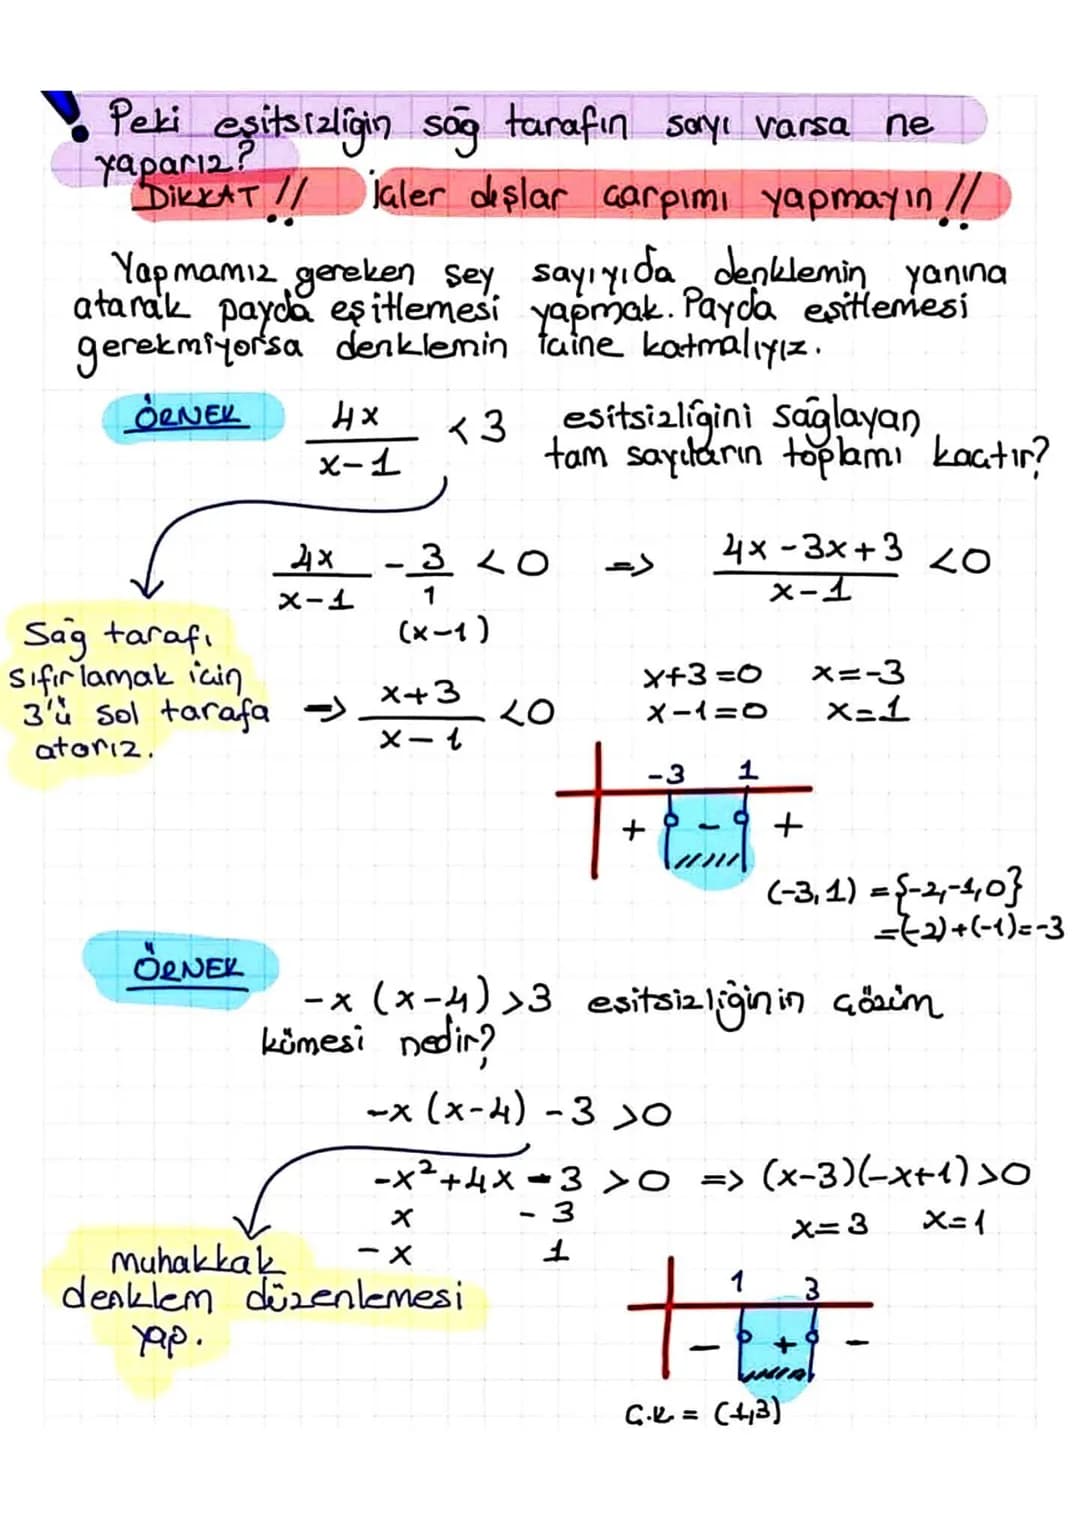 ! Peki eşitsizliğin sağ tarafın sayı varsa ne
yaparız?
DİKKAT !! İçler dışlar çarpımı yapmayın !!
Yapmamız gereken şey sayıyıda denklemin yanına
atarak payda eşitlemesi yapmak. Payda eşitlemesi
gerekmiyorsa denklemin içine katmalıyız.
ÖRNEK 4x/(x-1) < 3 eşitsizliğini sağlayan
tam sayıların toplamı kaçtır?
4x/(x-1) - 3/1 < 0 => (4x-3x+3)/(x-1) < 0
(x-1)
Sağ tarafı
sıfırlamak için
3'ü sol tarafa
atarız.
=> (x+3)/(x-1) < 0
x+3=0 x=-3
x-1=0 x=1
-3 1
+ - +
(-3,1) = {-2,-1,0}
=(-2)+(-1)=-3
ÖRNEK
-x (x-4) > 3 eşitsizliğinin çözüm
kümesi nedir?
-x (x-4) - 3 > 0
-x²+4x-3 > 0 => (x-3)(-x+1) > 0
x - 3
-x 1
x=3 x=1
Muhakkak
denklem düzenlemesi
yap.
1 3
- + -
Ç.K = (1,3)